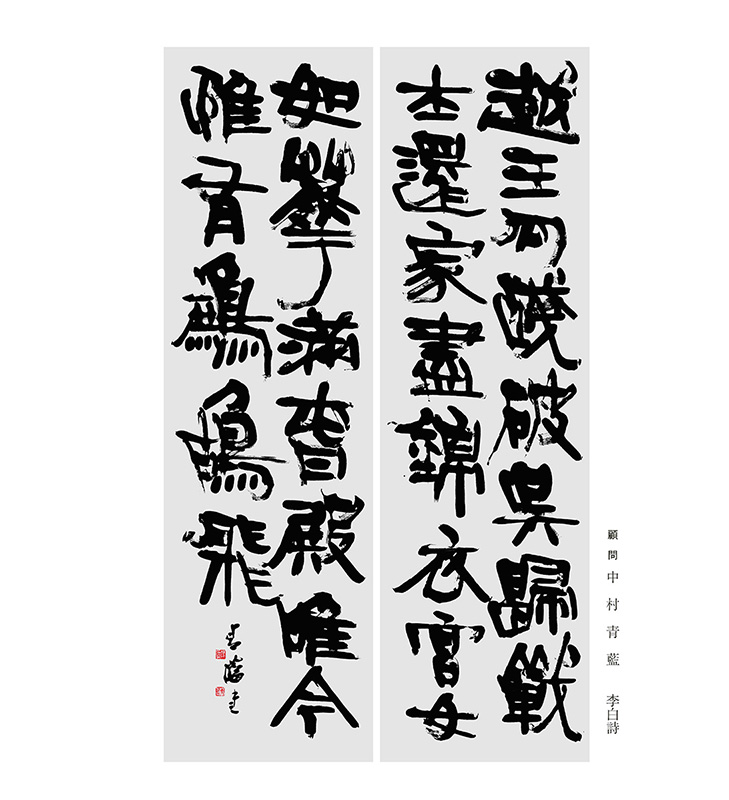 越王句踐破吳歸戰
士還家盡錦衣宮女
如華滿春殿唯今
惟有鷓鴣飛
青藍書
顧問 中村青藍 李白詩